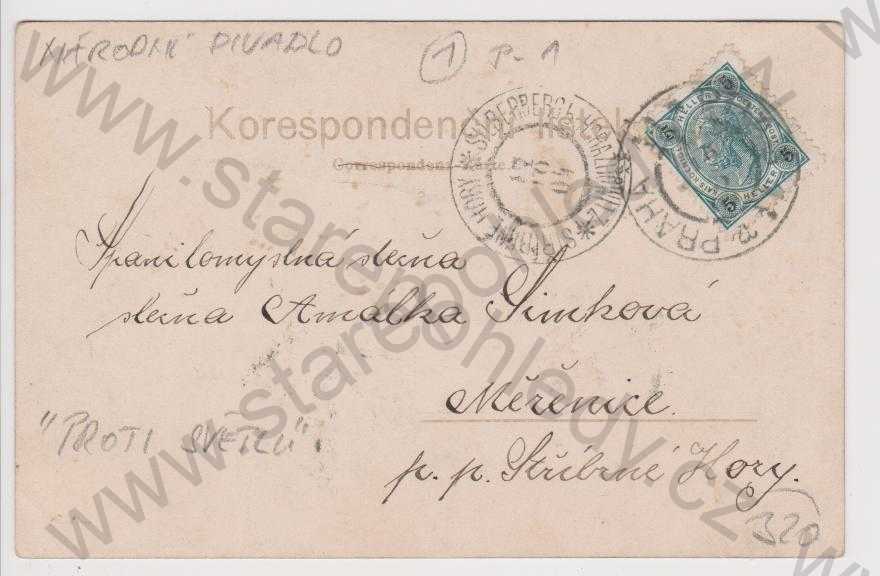 NÁRODNÍ DIVADLO
1 P-1
Korespondenční lístek
Correspondenz-Karte
SILBERBERG HORAZDIOWITZ
STŘÍBRNÉ HORY
PRAHA
5 HELLER 5
Spanilomyslná slečna
slečna Amalka Šimková
Měřenice.
p. p. Stříbrné Hory.
"PROTI SVĚTLU"
320
www.starepohledy.cz